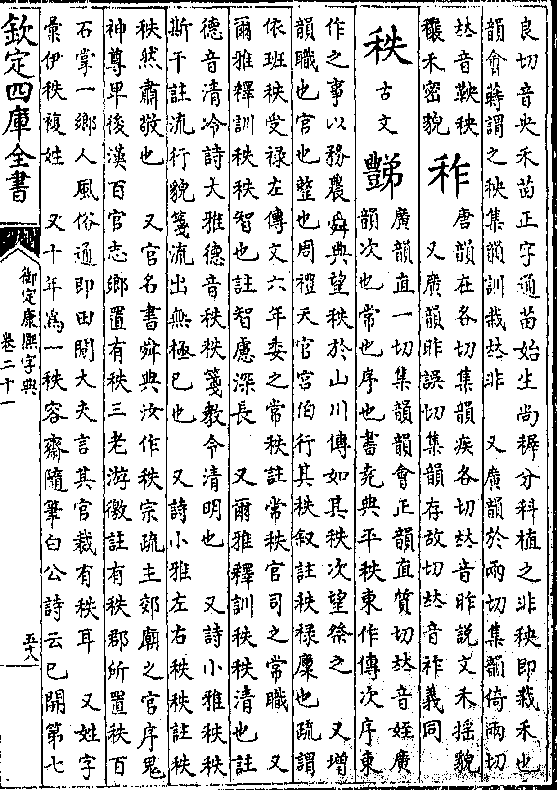 良切音央禾苗正字通苗始生尚稺分科植之非秧即栽禾也
韻會蔣謂之秧集韻訓栽𠀤非　又廣韻於兩切集韻倚兩切
𠀤音鞅秧穰禾密貌　秨　唐韻在各切集韻疾各切𠀤音昨説文禾揺貌又廣韻昨誤切集韻存故切𠀤音祚義同
秩　古文　豑　廣韻直一切集韻韻會正韻直質切𠀤音姪廣韻次也常也序也書堯典平秩東作傳次序東
作之事以務農舜典望秩於山川傳如其秩次望祭之　又增
韻職也官也整也周禮天官宮伯行其秩叙註秩禄廩也疏謂
依班秩受禄左傳文六年委之常秩註常秩官司之常職　又
爾雅釋訓秩秩智也註智慮深長　又爾雅釋訓秩秩清也註
德音清泠詩大雅德音秩秩箋教令清明也　又詩小雅秩秩
斯干註流行貌箋流出無極已也　又詩小雅左右秩秩註秩
秩然肅敬也　又官名書舜典汝作秩宗疏主郊廟之官序鬼
神尊卑後漢百官志鄉置有秩三老游徼註有秩郡所置秩百
石掌一鄉人風俗通即田間大夫言其官裁有秩耳　又姓字
彙伊秩複姓　又十年爲一秩容齋隨筆白公詩云已開第七
欽定四庫全書
御定康熙字典
卷二十一
五十八